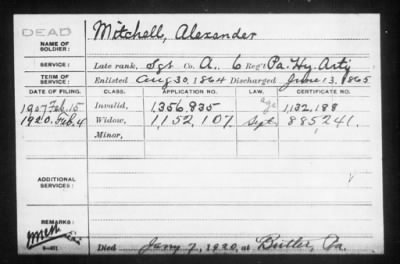 DEAD
NAME OF SOLDIER: Mitchell, Alexander
SERVICE: Late rank, Sgt Co. A, 6 Reg't Pa. Hy. Arty
TERM OF SERVICE: Enlisted Aug 30, 1864 Discharged June 13, 1865
DATE OF FILING. CLASS. APPLICATION NO. LAW. CERTIFICATE NO.
1907 Feb. 15 Invalid, 1,356,835 age 1,132,188
1920. Feb. 4 Widow, 1,152,107. Sept. 885241.
Minor,
ADDITIONAL SERVICES:
REMARKS:
Died Jany 7, 1920, at Butler, Pa.